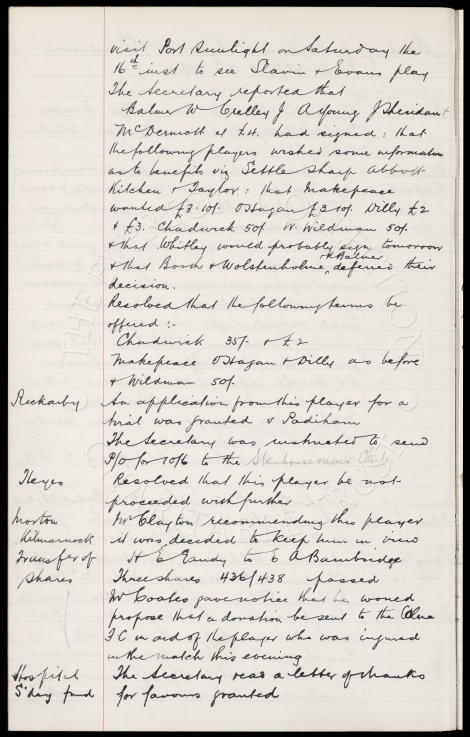 visit Port Sunlight on Saturday the
16th inst to see Slavin & Evans play
The Secretary reported that
Balmer W Crelley J A Young J Sheridan &
McDermott at £4. had signed: that
the following players wished some information
as to benefits viz Settle Sharp Abbott
Kitchen & Taylor: that Makepeace
wanted £3.10/. O'Hagan £3 10/. Dilly £2
& £3. Chadwick 50/ W. Wildman 50/.
& that Whitley would probably sign tomorrow
& that Booth & Wolstenholme, & R Balmer deferred their
decision.
Resolved that the following terms be
offered :-
Chadwick 35/- & £2
Makepeace O'Hagan & Dilly as before
& Wildman 50/.
Rickarby An application from this player for a
trial was granted v Padiham
The Secretary was instructed to send
P/O for 10/6 to the Stenhousemuir Club
Heyes Resolved that this player be not
proceeded with further
Morton Mr Clayton recommending this player
Kilmarnock it was decided to keep him in view
Transfer of H E Gandy to E A Bainbridge
Shares Three shares 436/438 passed
Mr Coates gave notice that he would
propose that a donation be sent to the Colne
F C in aid of the player who was injured
in the match this evening
Hospital The Secretary read a letter of thanks
S'day fund for favours granted